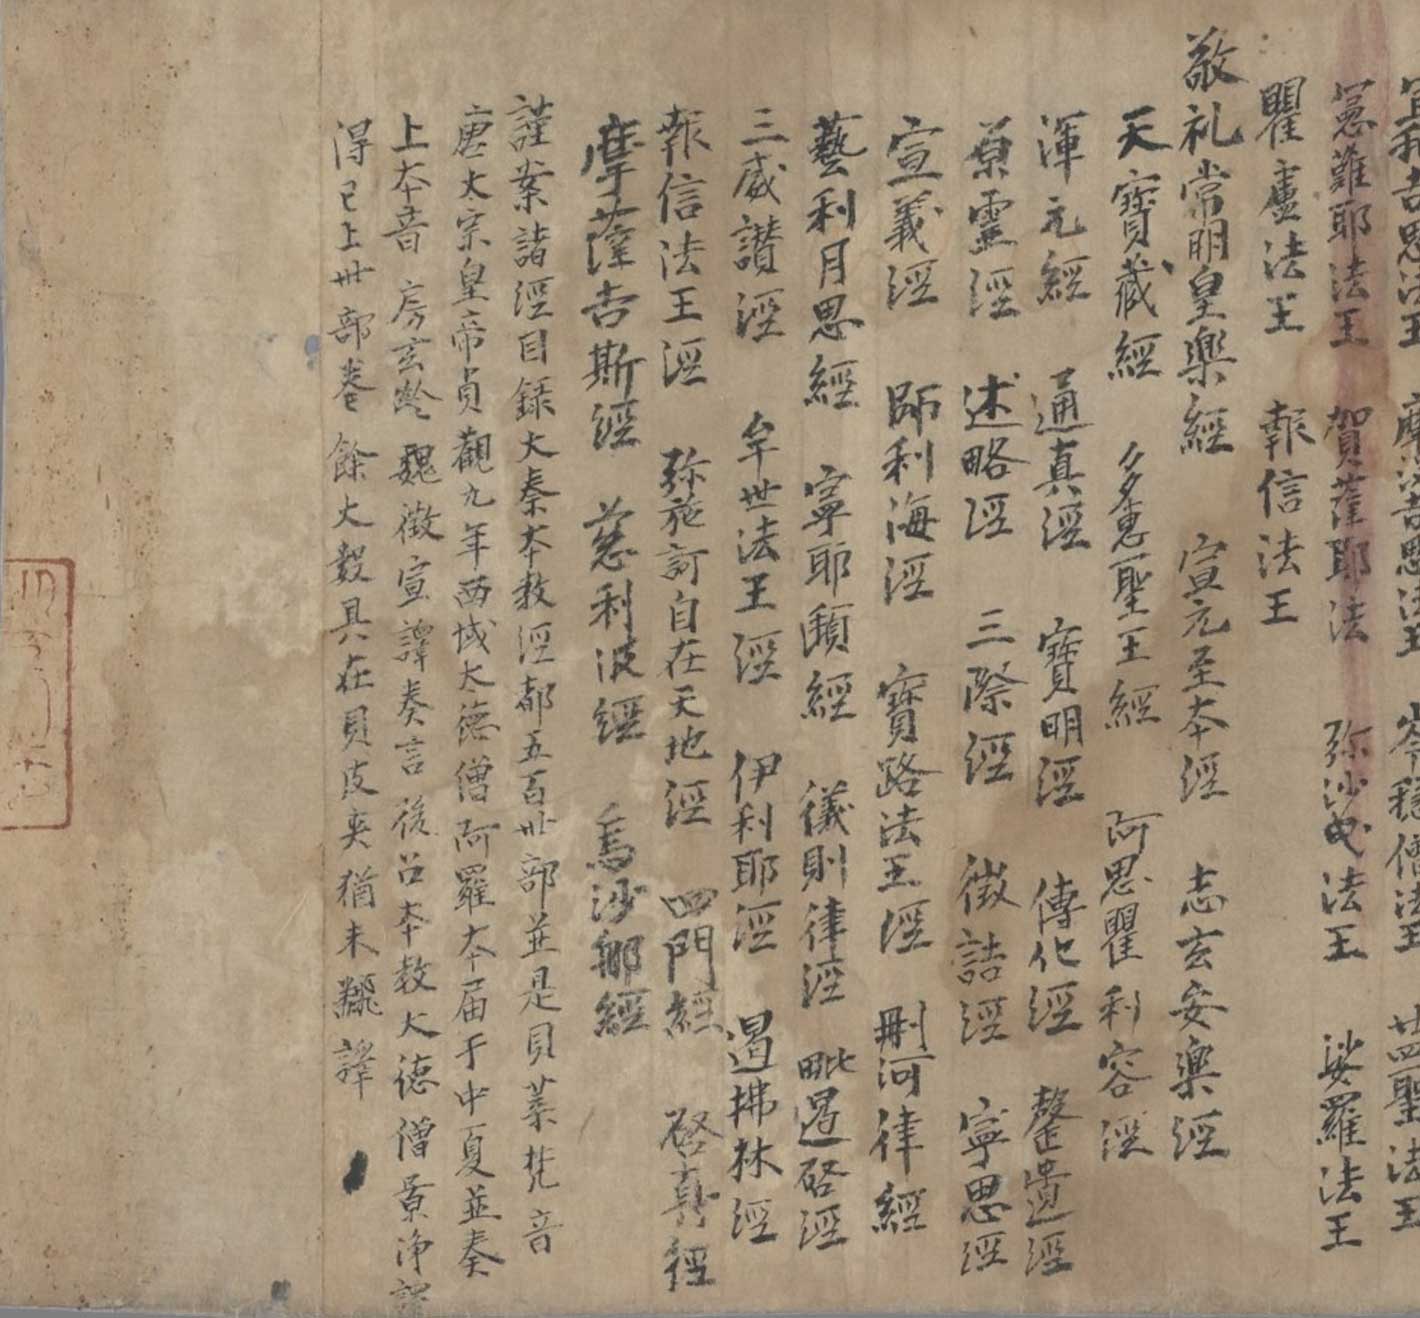 宜和吉思法王 摩沒吉思法王 岑穩僧法王 廿四聖法王
憲難耶法王 賀薩耶法 弥沙曳法王 娑羅法王
瞿盧法王 報信法王
敬礼常明皇樂經 宣元至本經 志玄安樂經
天寶藏經 多惠聖王經 阿思瞿利容經
渾元經 通真經 寶明經 傳化經 罄遺經
原靈經 述略經 三際經 徵詰經 寧思經
宣義經 師利海經 寶路法王經 刪河律經
藝利月思經 寧耶頤經 儀則律經 毗遏啓經
三威讚經 牟世法王經 伊利耶經 遏拂林經
報信法王經 弥施訶自在天地經 四門經 啓真經
摩薩吉斯經 慈利波經 烏沙郍經
謹案諸經目錄大秦本教經都五百卅部並是貝葉梵音
唐太宗皇帝貞觀九年西域太德僧阿羅本屆于中夏並奏
上本音房玄齡魏徵宣譯奏言後召本教大德僧景净譯
得已上卅部卷餘大數具在貝皮夾猶未飜譯